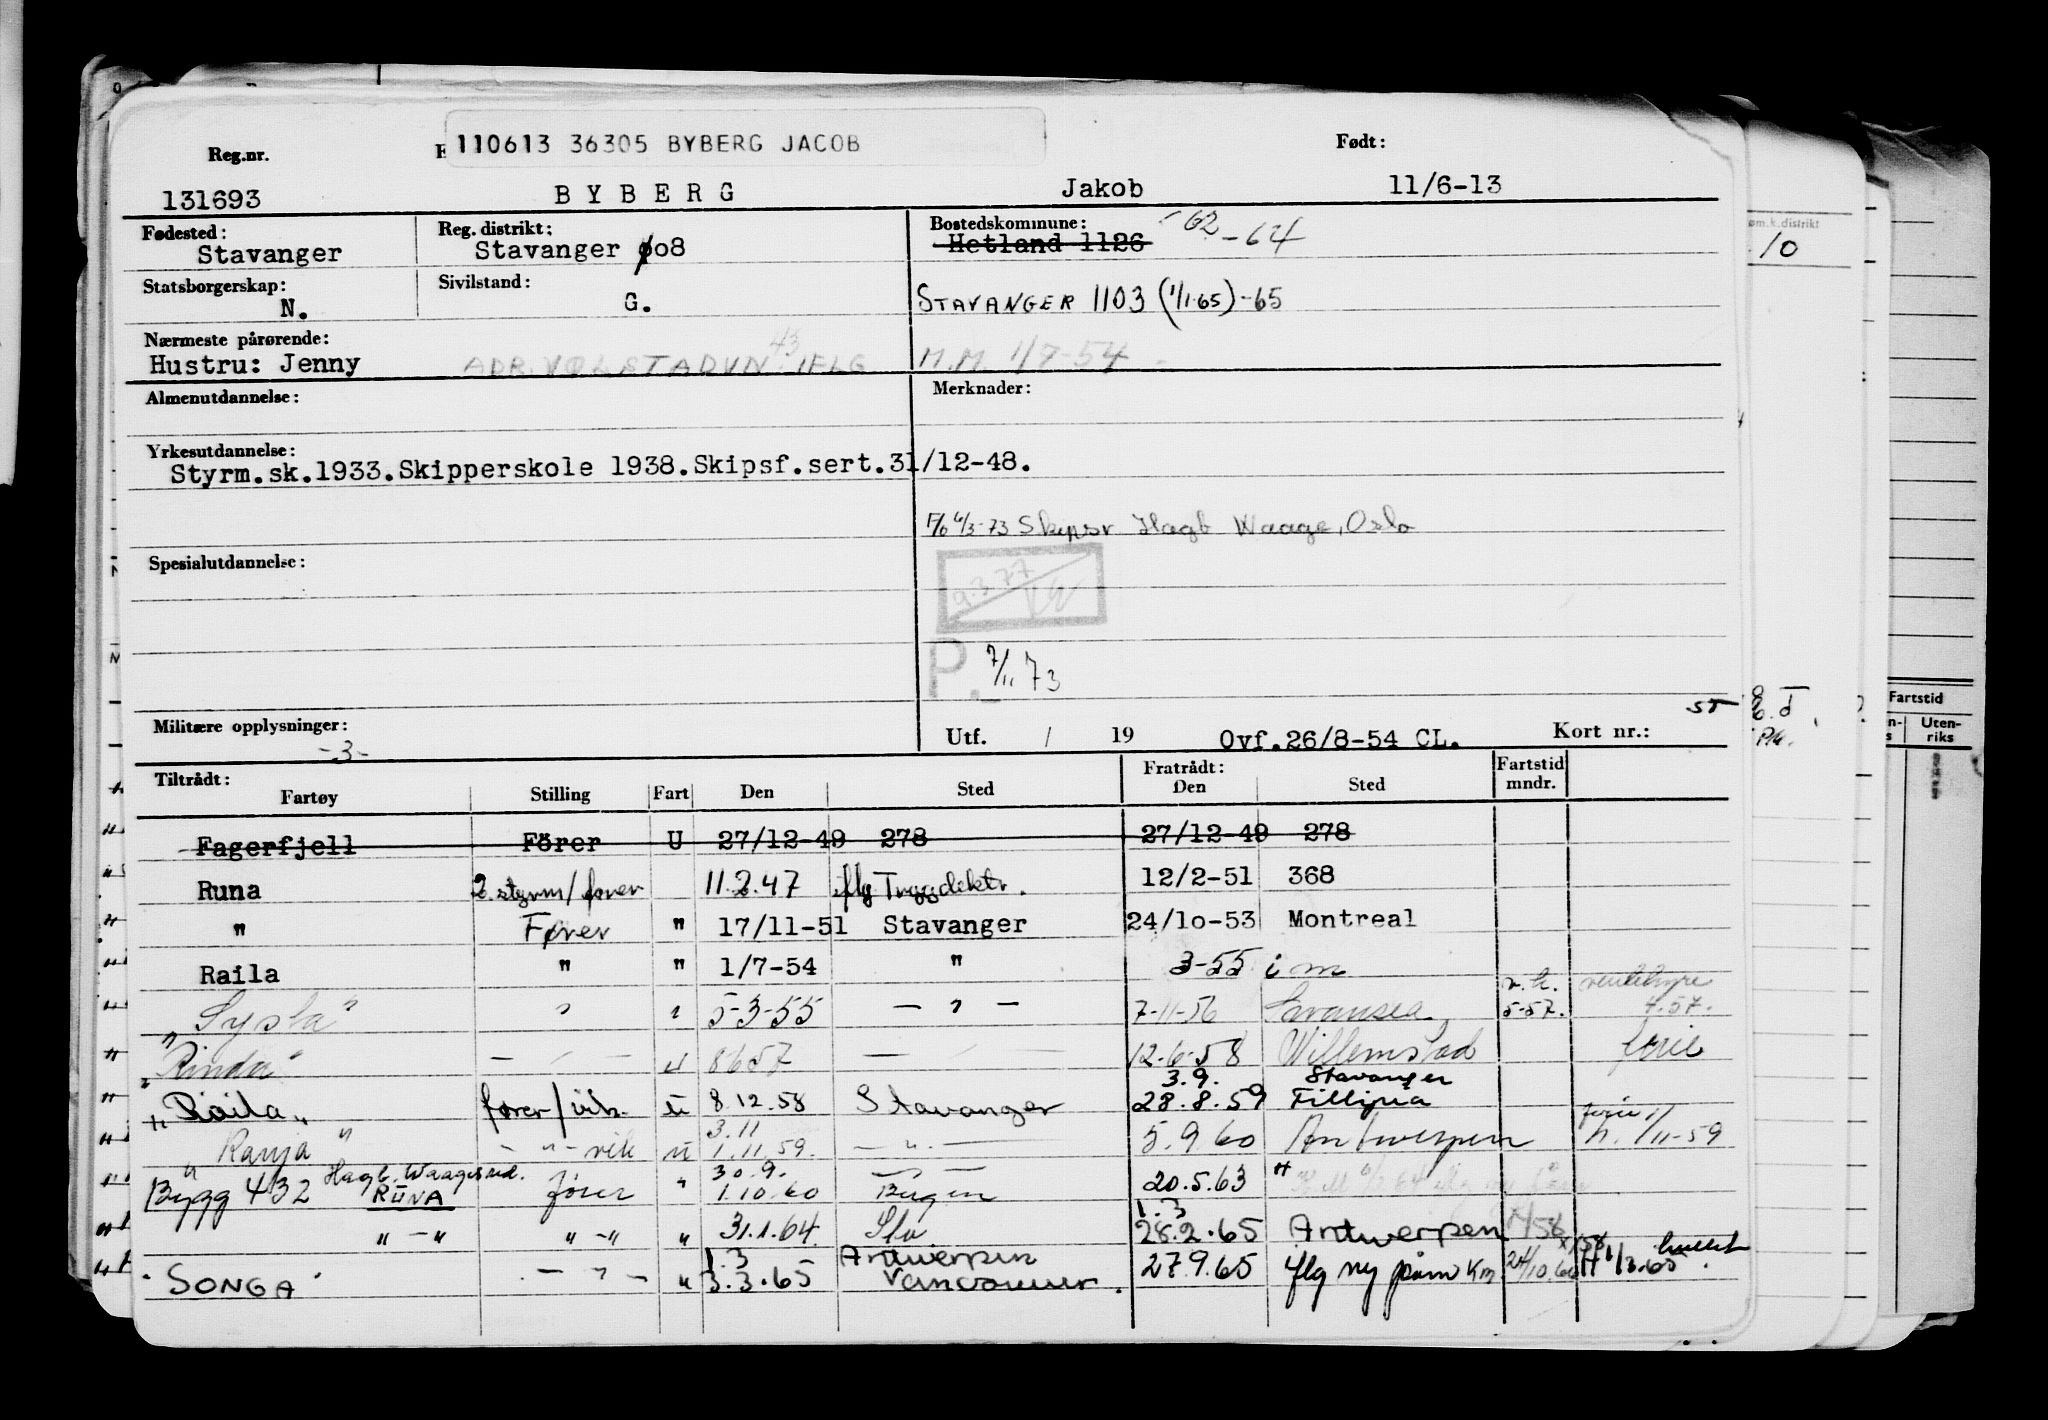 110613 36305 BYBERG JACOB
Reg.nr. Født:
131693 BYBERG Jakob 11/6-13
Fødested: Reg. distrikt: Bostedskommune: 62-64
Stavanger Stavanger 008 Hetland 1126
Statsborgerskap: Sivilstand:
N. G. STAVANGER 1103 (1/1-65)-65
Nærmeste pårørende:
Hustru: Jenny M.M. 1/7-54
Almenutdannelse: Merknader:
Yrkesutdannelse:
Styrm.sk.1933.Skipperskole 1938.Skipsf.sert.31/12-48.
6/3-73 Skipsr Hagb Waage, Oslo
Spesialutdannelse:
9.3.77
P. 7/11 73
Militære opplysninger: Utf. / 19 Ovf.26/8-54 CL. Kort nr.:
-3-
Tiltrådt: Fratrådt: Fartstid
Fartøy Stilling Fart Den Sted Den Sted mndr.
Fagerfjell Förer U 27/12-49 278 27/12-49 278
Runa 2.styrm/fører 11.2.47 iflg Tryggdektr. 12/2-51 368
" Fører " 17/11-51 Stavanger 24/10-53 Montreal
Raila " " 1/7-54 " 3-55 i m
"Sysla" " " 5-3-55 — " — 7-11-56 Swansea 5-57. 4.57.
"Rinda" — " — " 8657 — " — 12.6.58 Willemstad ferie
3.9. Stavanger
"Raila" fører/vik. u 8.12.58 Stavanger 28.8.59
3.11
"Ranja" - " - vik u 1.11.59. — " — 5.9.60 Antwerpen 1/11-59
Hagb. Waages red. 30.9.
Bygg 432 RUNA fører " 1.10.60 Bergen 20.5.63
1.3
" - " " - " " 31.1.64 28.2.65 Antwerpen
1.3 Antwerpen
"SONGA" — " — " 3.3.65 Vancouver. 27.9.65 iflg ny påm Km 24/10.66 1/3.65
Fartstid
Uten-
riks
10